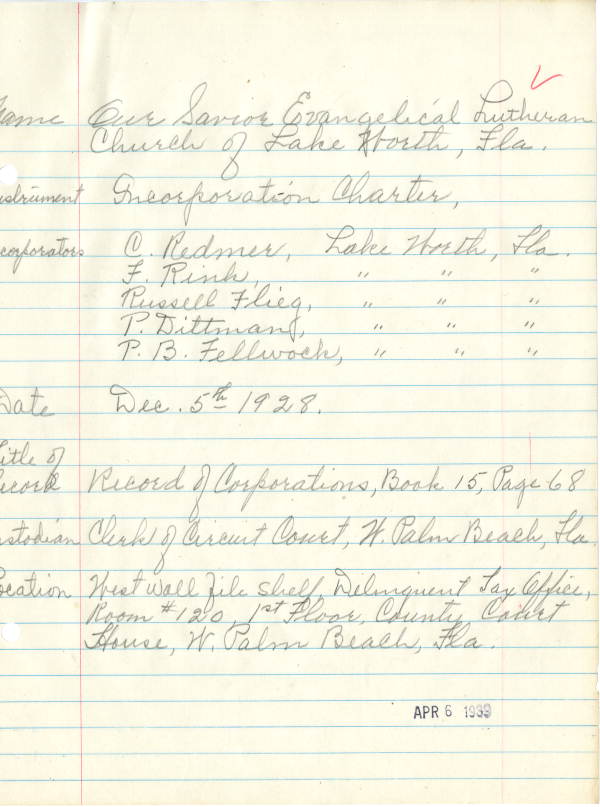 Name Our Savior Evangelical Lutheran
Church of Lake Worth, Fla.
nstrument Incorporation Charter,
corporators C. Redmer, Lake Worth, Fla.
F. Rink, " " "
Russell Flieg, " " "
P. Dittmann, " " "
P. B. Fellwock, " " "
Date Dec. 5th 1928.
Title of
Record Record of Corporations, Book 15, Page 68
ustodian Clerk of Circuit Court, W. Palm Beach, Fla.
ocation West Wall File Shelf, Delinquent Tax Office,
Room #120, 1st Floor, County Court
House, W. Palm Beach, Fla.
APR 6 1939